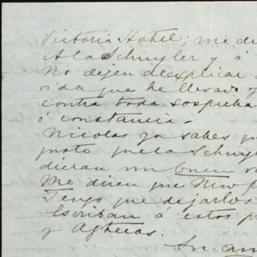 Victoria Hotel; me di
A la Schuyler y ó
No dejen de explicar
vida que he llevado y
contra toda sospecha
ó constancia.
Nicolas ya sabes q
gusto que la Schuyl
dieran un buen
Me dicen que New
Tengo que dejarlos
Escriban á estos p
y Agheras.
Su am